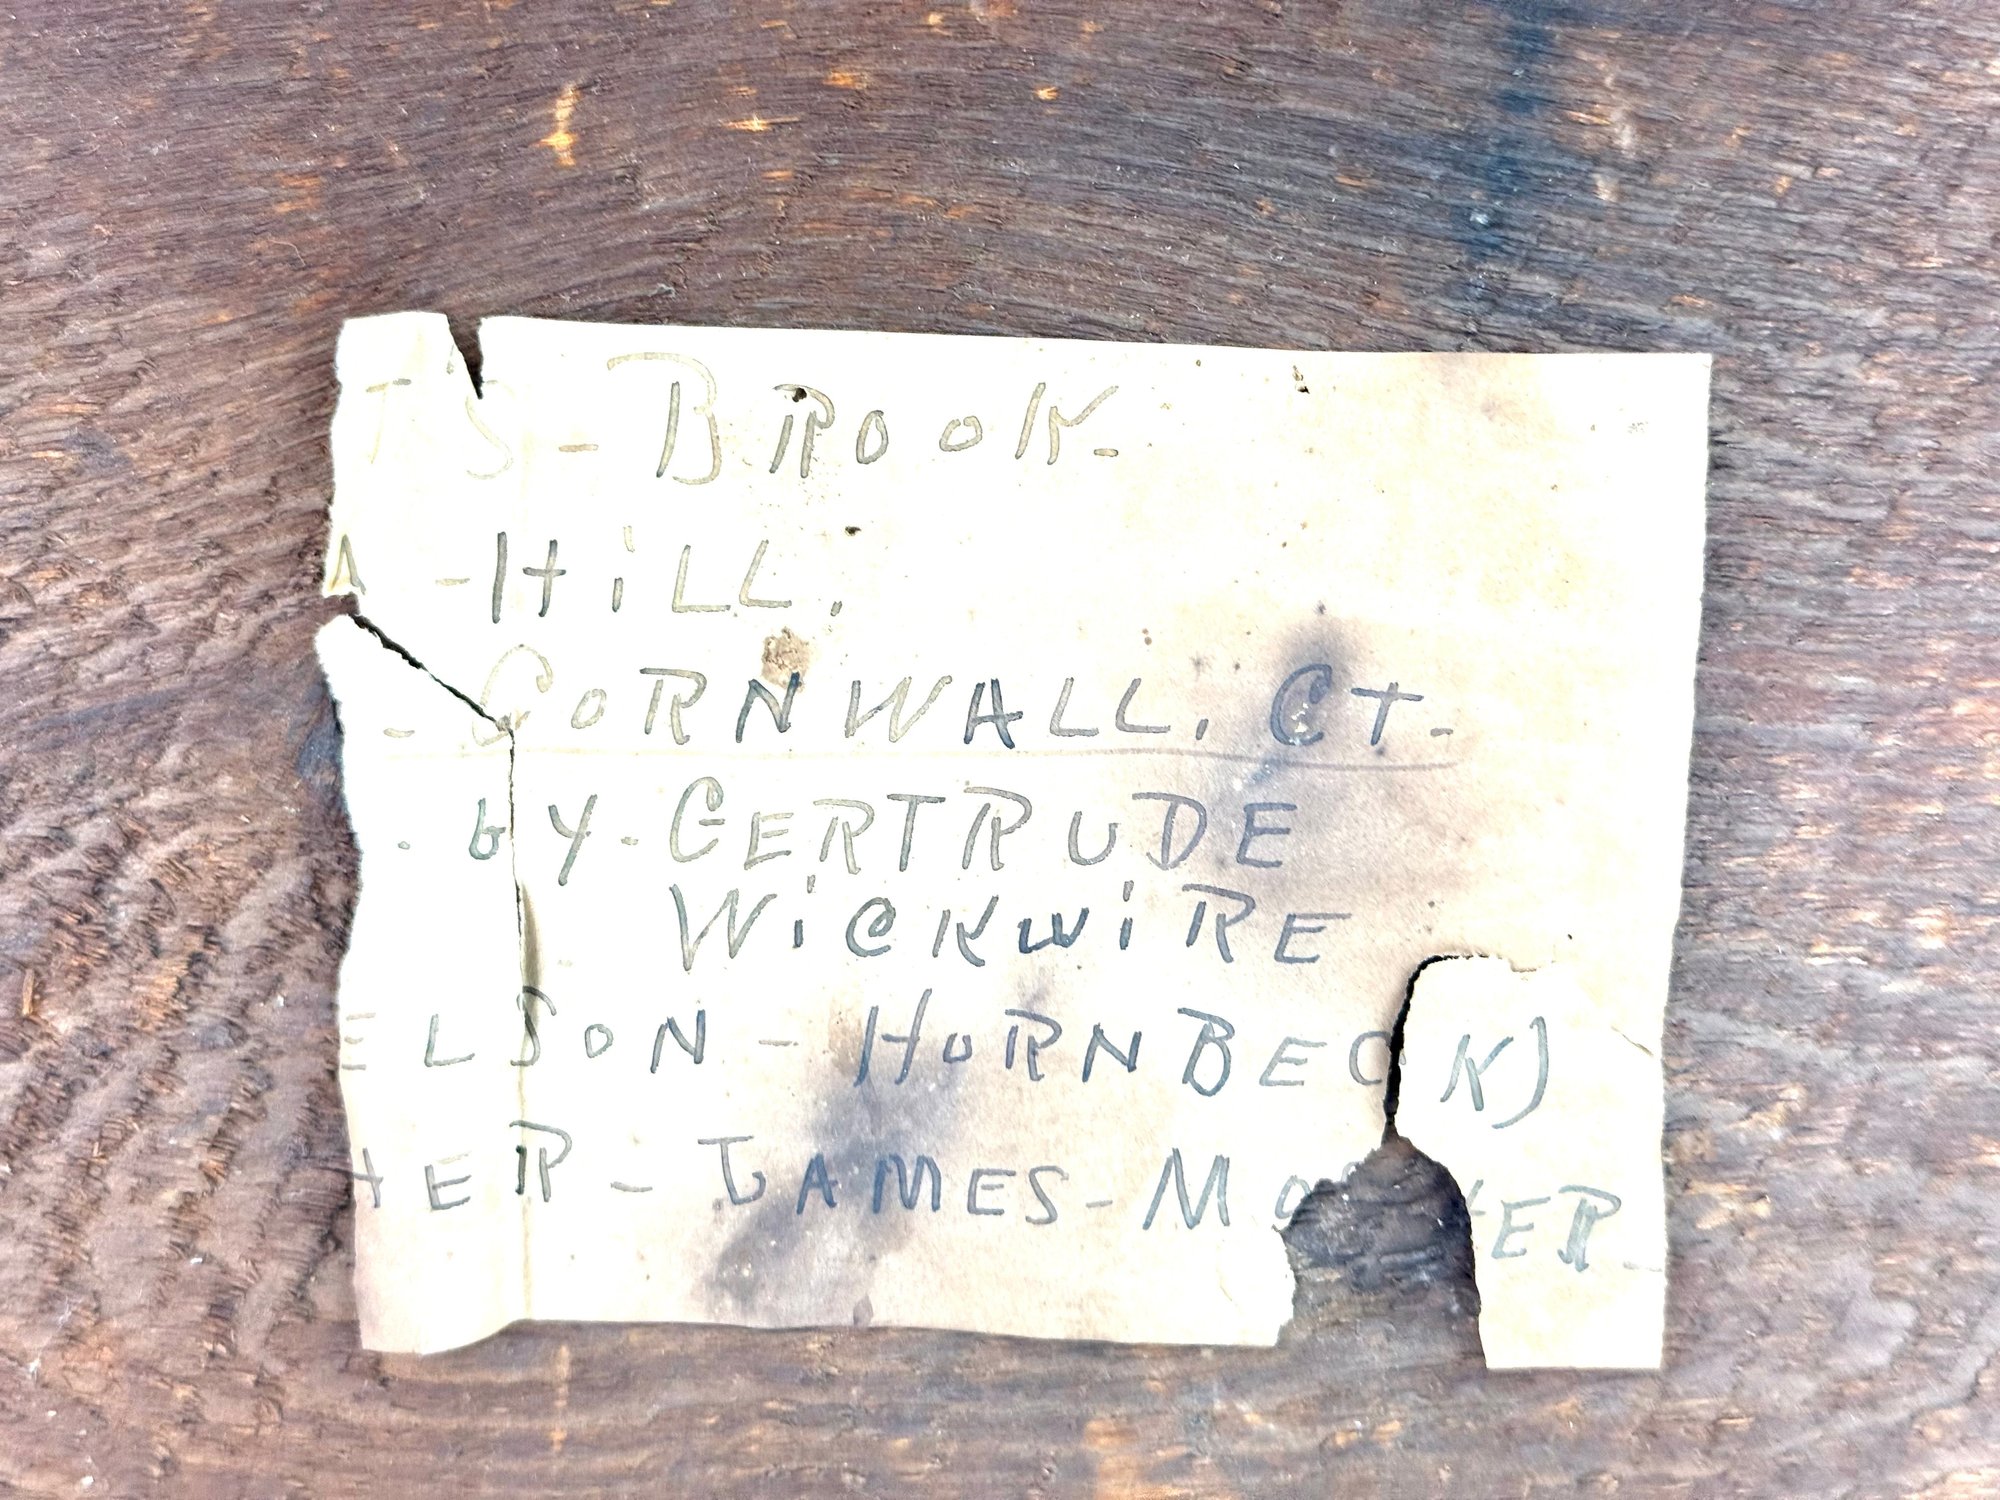 T'S - BROOK -
A - HiLL.
- CORNWALL. CT -
. by - GERTRUDE
WiCKWiRE
ELSON - HORNBECK)
HER - JAMES -